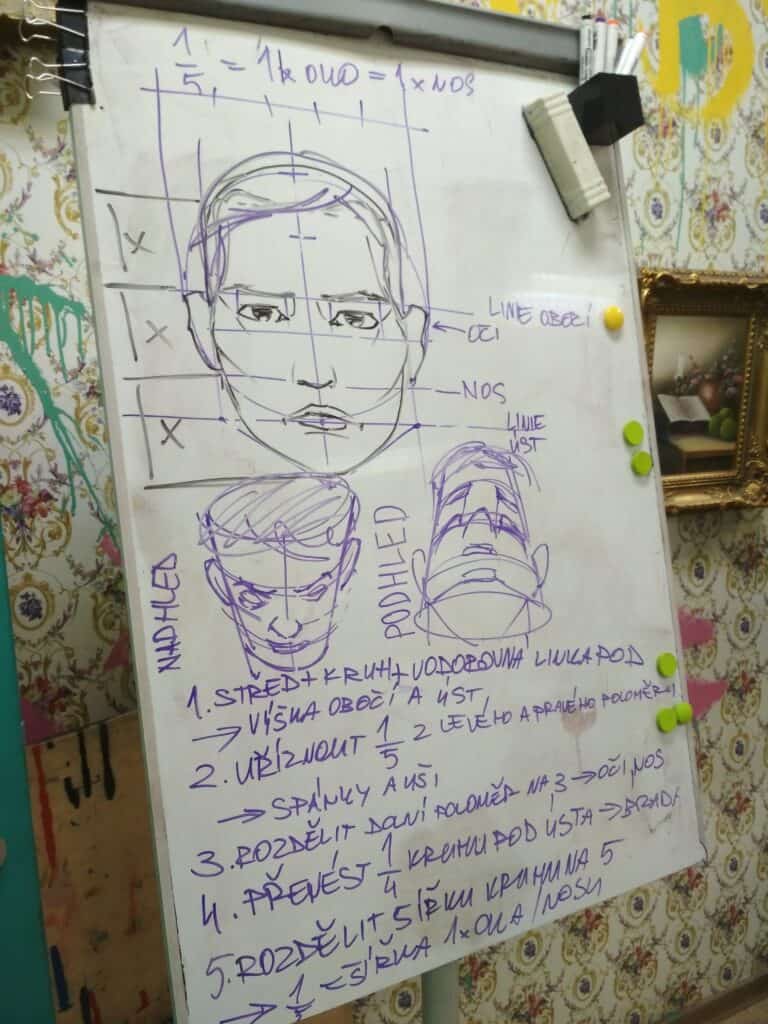 1/5 = 1x OKO = 1x NOS
X
X
X
LINE OBOČÍ
OČI
NOS
LINIE
ÚST
NADHLED
PODHLED
1. STŘED + KRUH + VODOROVNÁ LINKA POD
→ VÝŠKA OBOČÍ A ÚST
2. UŘÍZNOUT 1/5 Z LEVÉHO A PRAVÉHO POLOMĚRU
→ SPÁNKY A UŠI
3. ROZDĚLIT DOLNÍ POLOMĚR NA 3 → OČI, NOS
4. PŘENÉST 1/4 KRUHU POD ÚSTA → BRADA
5. ROZDĚLIT ŠÍŘKU KRUHU NA 5
→ 1/5 = ŠÍŘKA 1x OKA / NOSU